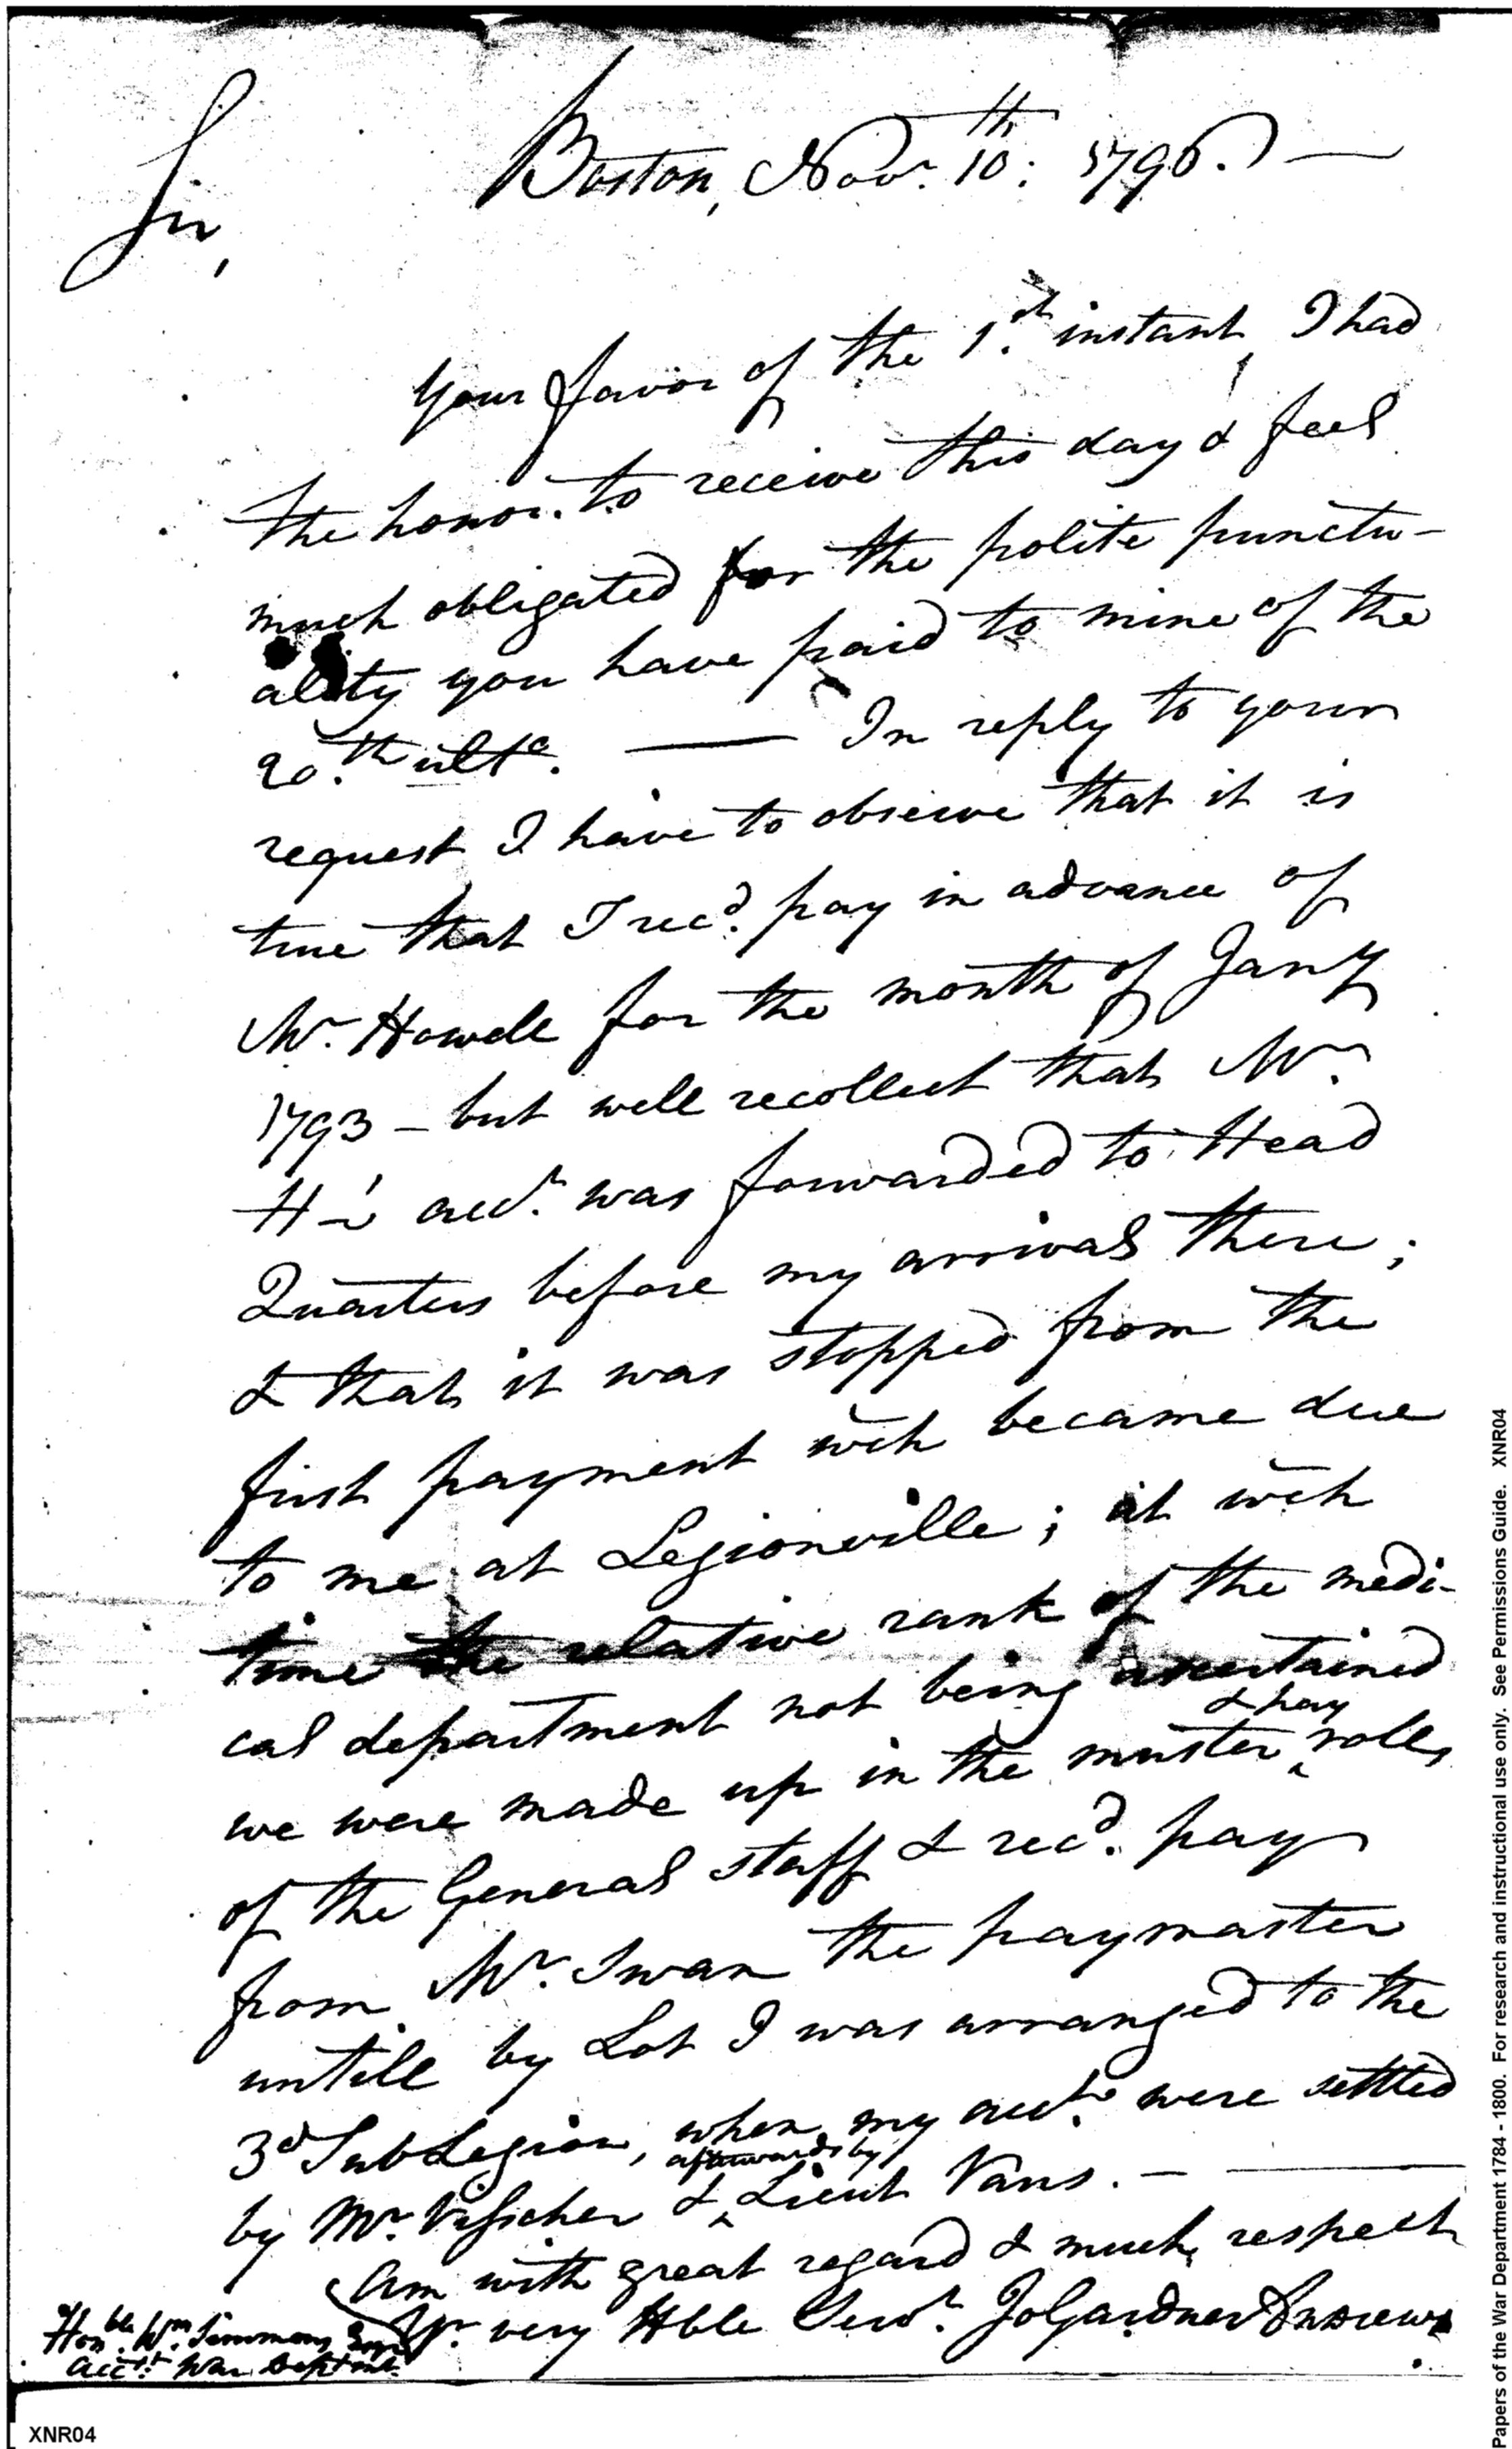 Boston, Novr. 10th: 1796. —
Sir,
Your favor of the 1st. instant, I had
the honor. to receive this day & feel
much obligated for the polite punctu-
ality you have paid to mine of the
20.th ulto. — In reply to your
request I have to observe that it is
true that I recd. pay in advance of
Mr. Howell for the month of Jany
1793 – but well recollect that Mr.
H—'s acct. was forwarded to Head
Quarters before my arrival there;
& that it was stopped from the
first payment wch became due
to me at Legionville; at wch
time the relative rank of the medi-
cal department not being ascertained
& pay
we were made up in the muster rolls
of the General staff & recd. pay
from Mr. Swan the paymaster
untill by Lot I was arranged to the
3d SubLegion, when my accts. were settled
afterwards by
by Mr. Visscher & Lieut Vans. —
Am with great regard & much respect
Yr. very Hble Servt. JoGardner Andrews
Honble. Wm. Simmons Esqr
Acctt. War Deptmt.
XNR04
Papers of the War Department 1784 - 1800. For research and instructional use only. See Permissions Guide. XNR04